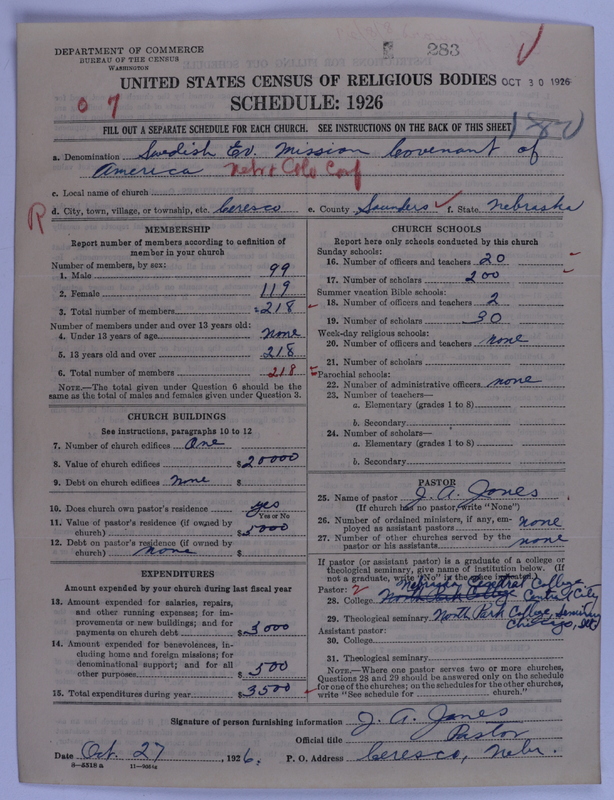 283
DEPARTMENT OF COMMERCE
BUREAU OF THE CENSUS
WASHINGTON
UNITED STATES CENSUS OF RELIGIOUS BODIES OCT 30 1926
0 7 SCHEDULE: 1926
FILL OUT A SEPARATE SCHEDULE FOR EACH CHURCH. SEE INSTRUCTIONS ON THE BACK OF THIS SHEET
180
a. Denomination Swedish Ev. Mission Covenant of
America Nebr & Colo Conf
c. Local name of church
R d. City, town, village, or township, etc. Ceresco e. County Saunders f. State Nebraska
MEMBERSHIP
Report number of members according to definition of
member in your church
Number of members, by sex:
1. Male 99
2. Female 119
3. Total number of members 218
Number of members under and over 13 years old:
4. Under 13 years of age none
5. 13 years old and over 218
6. Total number of members 218
NOTE.—The total given under Question 6 should be the
same as the total of males and females given under Question 3.
CHURCH BUILDINGS
See instructions, paragraphs 10 to 12
7. Number of church edifices One
8. Value of church edifices $20000
9. Debt on church edifices none $
10. Does church own pastor's residence yes
Yes or No
11. Value of pastor's residence (if owned by
church) $5000
12. Debt on pastor's residence (if owned by
church) none $
EXPENDITURES
Amount expended by your church during last fiscal year
13. Amount expended for salaries, repairs,
and other running expenses; for im-
provements or new buildings; and for
payments on church debt $3000
14. Amount expended for benevolences, in-
cluding home and foreign missions; for
denominational support; and for all
other purposes $500
15. Total expenditures during year $3500
CHURCH SCHOOLS
Report here only schools conducted by this church
Sunday schools:
16. Number of officers and teachers 20
17. Number of scholars 200
Summer vacation Bible schools:
18. Number of officers and teachers 2
19. Number of scholars 30
Week-day religious schools:
20. Number of officers and teachers none
21. Number of scholars
Parochial schools:
22. Number of administrative officers none
23. Number of teachers—
a. Elementary (grades 1 to 8)
b. Secondary
24. Number of scholars—
a. Elementary (grades 1 to 8)
b. Secondary
PASTOR
25. Name of pastor J. A. Jones
(If church has no pastor, write "None")
26. Number of ordained ministers, if any, em-
ployed as assistant pastors none
27. Number of other churches served by the
pastor or his assistants none
If pastor (or assistant pastor) is a graduate of a college or
theological seminary, give name of institution below. (If
not a graduate, write "No" in the place indicated.)
Pastor: 2 Nebraska Central College
28. College North Park College Central City
29. Theological seminary North Park College, Seminary
Chicago, Ill
Assistant pastor:
30. College
31. Theological seminary
NOTE.—Where one pastor serves two or more churches,
Questions 28 and 29 should be answered only on the schedule
for one of the churches; on the schedules for the other churches,
write "See schedule for church."
Signature of person furnishing information J. A. Jones
Official title Pastor
Date Oct. 27, 1926. P. O. Address Ceresco, Nebr.